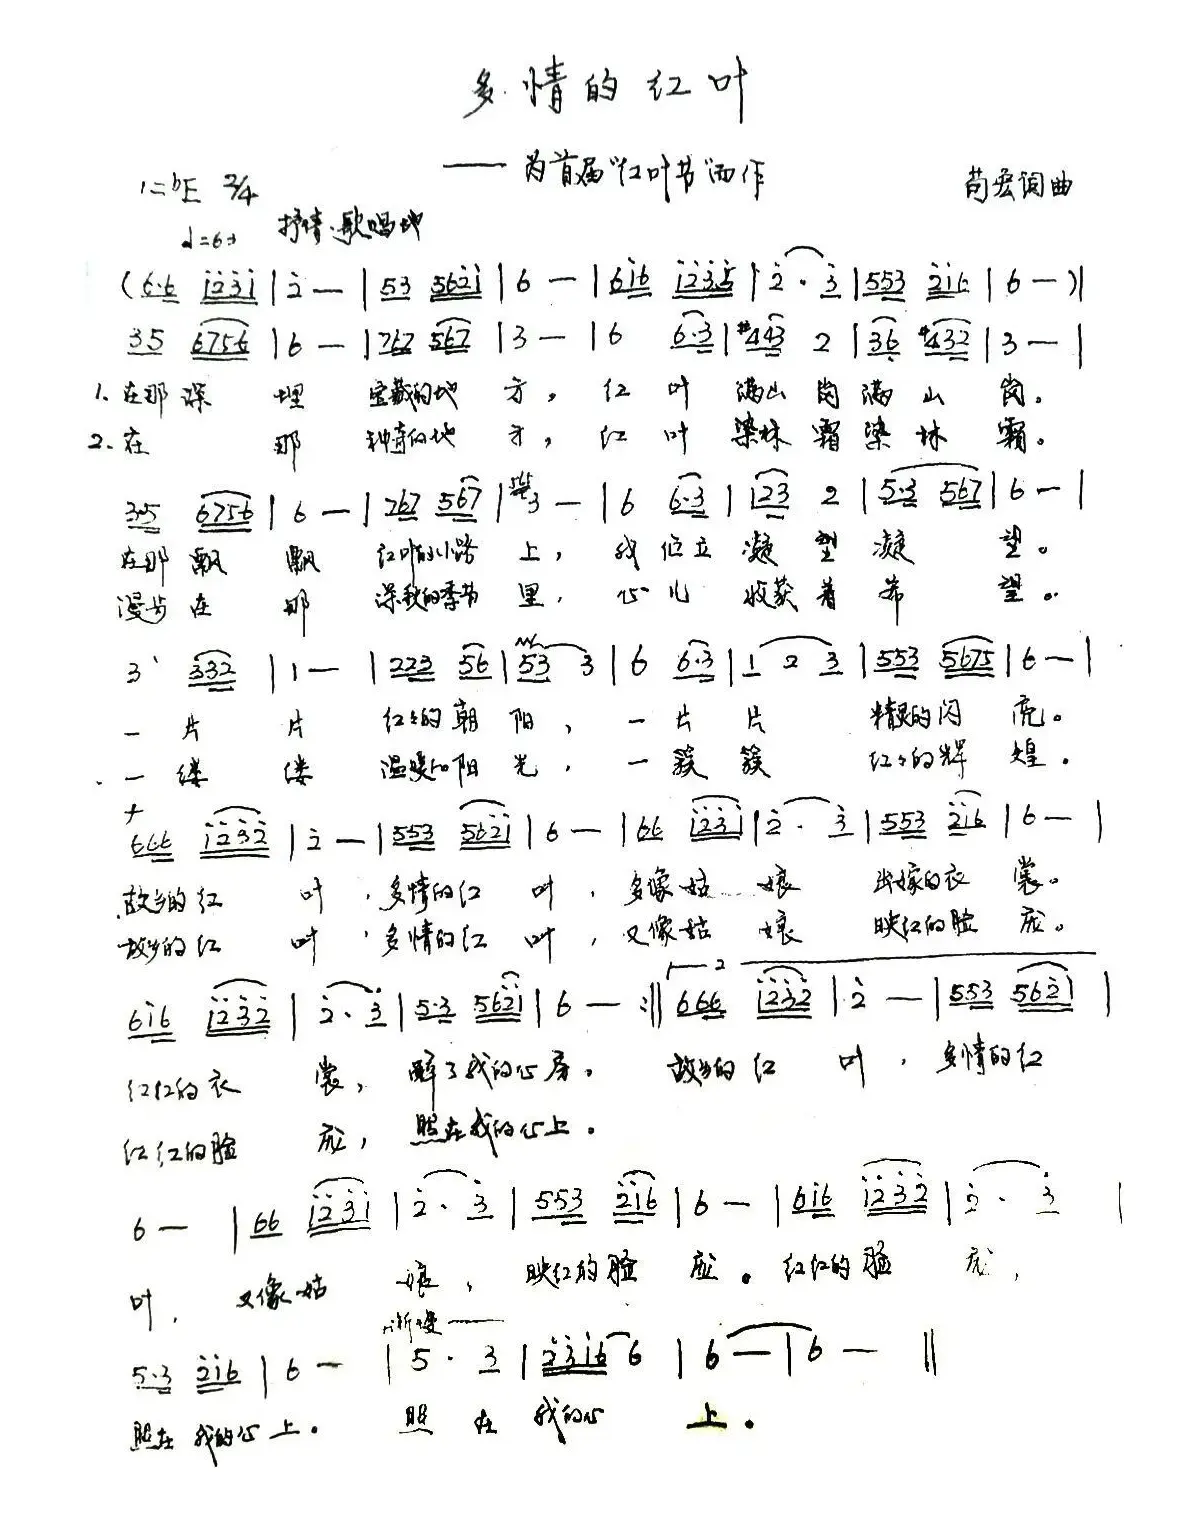 多情的红叶
——为首届“红叶节”而作
1=ᵇE 2/4 苟宏词曲
抒情.歌唱地
(6·6 i̇2̇3̇i̇ | 2̇ — | 53 562̇i̇ | 6 — | 6i̇6 i̇2̇3̇5̇ | 2̇·3̇ | 553 2̇i̇6 | 6 —)|
35 6756 | 6 — | 767 567 | 3 — | 6 6·3 | #443 2 | 36 #432 | 3 — |
1.在那深埋宝藏的地方,红叶满山岗满山岗。
2.在那神奇的地方,红叶染林霜染林霜。
3·5 6756 | 6 — | 767 567 | 3 — | 6 6·3 | i̇23 2 | 5·3 567 | 6 — |
在那飘飘红叶的小路上,我伫立凝望凝望。
漫步在那深秋的季节里,心儿收获着希望。
3 332 | 1 — | 223 56 | 53 3 | 6 6·3 | 1 2 3 | 553 5675 | 6 — |
一片片红红的朝阳,一片片精灵的闪亮。
一缕缕温暖的阳光,一簇簇红红的辉煌。
666 i̇2̇3̇2̇ | 2̇ — | 553 562̇i̇ | 6 — | 66 i̇2̇3̇i̇ | 2̇·3̇ | 553 2̇i̇6 | 6 — |
故乡的红叶,多情的红叶,多像姑娘出嫁的衣裳。
故乡的红叶,多情的红叶,又像姑娘映红的脸庞。
6i̇6 i̇2̇3̇2̇ | 2̇·3̇ | 5·3 562̇i̇ | 6 — :‖ 2 666 i̇2̇3̇2̇ | 2̇ — | 553 562̇i̇ |
红红的衣裳,醉了我的心房。故乡的红叶,多情的红
红红的脸庞,照在我的心上。
6 — | 66 i̇2̇3̇i̇ | 2̇·3̇ | 553 2̇i̇6 | 6 — | 6i̇6 i̇2̇3̇2̇ | 2̇·3̇ |
叶,又像姑娘,映红的脸庞。红红的脸庞,
渐慢——
5·3 2̇i̇6 | 6 — | 5·3 | 2̇3̇i̇6 6 | 6 — | 6 — ‖
照在我的心上。照在我的心上。